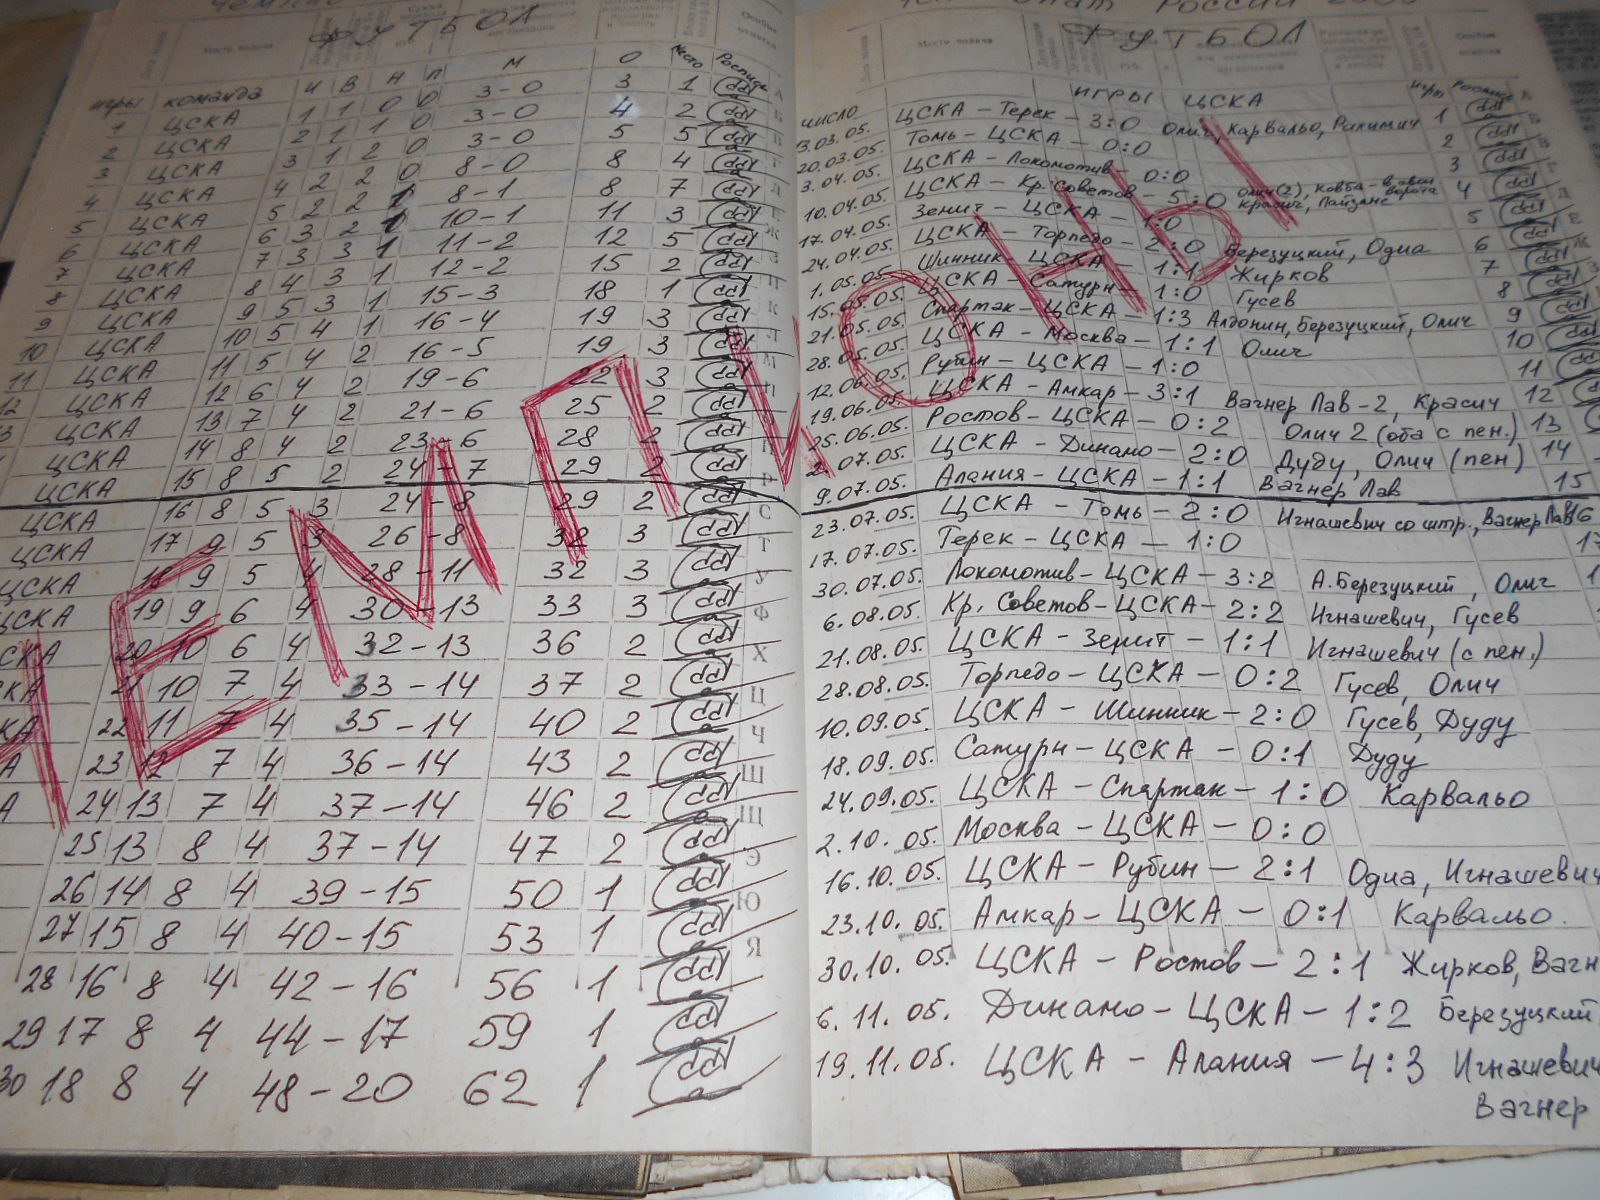 ФУТБОЛ
игры команда и в н п м о место Роспись
1 ЦСКА 1 1 0 0 3-0 3 1
2 ЦСКА 2 1 1 0 3-0 4 2
3 ЦСКА 3 1 2 0 3-0 5 5
4 ЦСКА 4 2 2 0 8-0 8 4
5 ЦСКА 5 2 2 1 8-1 8 7
6 ЦСКА 6 3 2 1 10-1 11 3
7 ЦСКА 7 3 3 1 11-2 12 5
8 ЦСКА 8 4 3 1 12-2 15 2
9 ЦСКА 9 5 3 1 15-3 18 1
10 ЦСКА 10 5 4 1 16-4 19 3
11 ЦСКА 11 5 4 2 16-5 19 3
12 ЦСКА 12 6 4 2 19-6 22 3
ЦСКА 13 7 4 2 21-6 25 2
ЦСКА 14 8 4 2 23-6 28 2
ЦСКА 15 8 5 2 24-7 29 2
ЦСКА 16 8 5 3 24-8 29 2
ЦСКА 17 9 5 3 26-8 32 3
ЦСКА 18 9 5 4 28-11 32 3
ЦСКА 19 9 6 4 30-13 33 3
СКА 20 10 6 4 32-13 36 2
СКА 21 10 7 4 33-14 37 2
КА 22 11 7 4 35-14 40 2
А 23 12 7 4 36-14 43 2
А 24 13 7 4 37-14 46 2
25 13 8 4 37-14 47 2
26 14 8 4 39-15 50 1
27 15 8 4 40-15 53 1
28 16 8 4 42-16 56 1
29 17 8 4 44-17 59 1
30 18 8 4 48-20 62 1
ЧЕМПИОНЫ
ФУТБОЛ
число ИГРЫ ЦСКА игры Роспись
13.03.05. ЦСКА - Терек - 3:0 Олич, Карвальо, Рахимич 1
20.03.05. Томь - ЦСКА - 0:0 2
3.04.05. ЦСКА - Локомотив - 0:0 3
10.04.05. ЦСКА - Кр. Советов - 5:0 Олич(2), Ковба - в свои ворота Красич, 4
17.04.05. Зенит - ЦСКА - 1:0 5
24.04.05. ЦСКА - Торпедо - 2:0 Березуцкий, Одиа 6
1.05.05. Шинник - ЦСКА - 1:1 Жирков 7
15.05.05. ЦСКА - Сатурн - 1:0 Гусев 8
21.05.05. Спартак - ЦСКА - 1:3 Алдонин, Березуцкий, Олич 9
28.05.05. ЦСКА - Москва - 1:1 Олич 10
12.06.05. Рубин - ЦСКА - 1:0 11
19.06.05. ЦСКА - Амкар - 3:1 Вагнер Лав - 2, Красич 12
25.06.05. Ростов - ЦСКА - 0:2 Олич 2 (оба с пен.) 13
2.07.05. ЦСКА - Динамо - 2:0 Дуду, Олич (пен) 14
9.07.05. Алания - ЦСКА - 1:1 Вагнер Лав 15
23.07.05. ЦСКА - Томь - 2:0 Игнашевич со штр., Вагнер Лав 16
17.07.05. Терек - ЦСКА - 1:0 17
30.07.05. Локомотив - ЦСКА - 3:2 А.Березуцкий, Олич 1
6.08.05. Кр. Советов - ЦСКА - 2:2 Игнашевич, Гусев
21.08.05. ЦСКА - Зенит - 1:1 Игнашевич (с пен.)
28.08.05. Торпедо - ЦСКА - 0:2 Гусев, Олич
10.09.05. ЦСКА - Шинник - 2:0 Гусев, Дуду
18.09.05. Сатурн - ЦСКА - 0:1 Дуду
24.09.05. ЦСКА - Спартак - 1:0 Карвальо
2.10.05. Москва - ЦСКА - 0:0
16.10.05. ЦСКА - Рубин - 2:1 Одиа, Игнашевич
23.10.05. Амкар - ЦСКА - 0:1 Карвальо.
30.10.05. ЦСКА - Ростов - 2:1 Жирков, Вагн
6.11.05. Динамо - ЦСКА - 1:2 Березуцкий,
19.11.05. ЦСКА - Алания - 4:3 Игнашевич
Вагнер